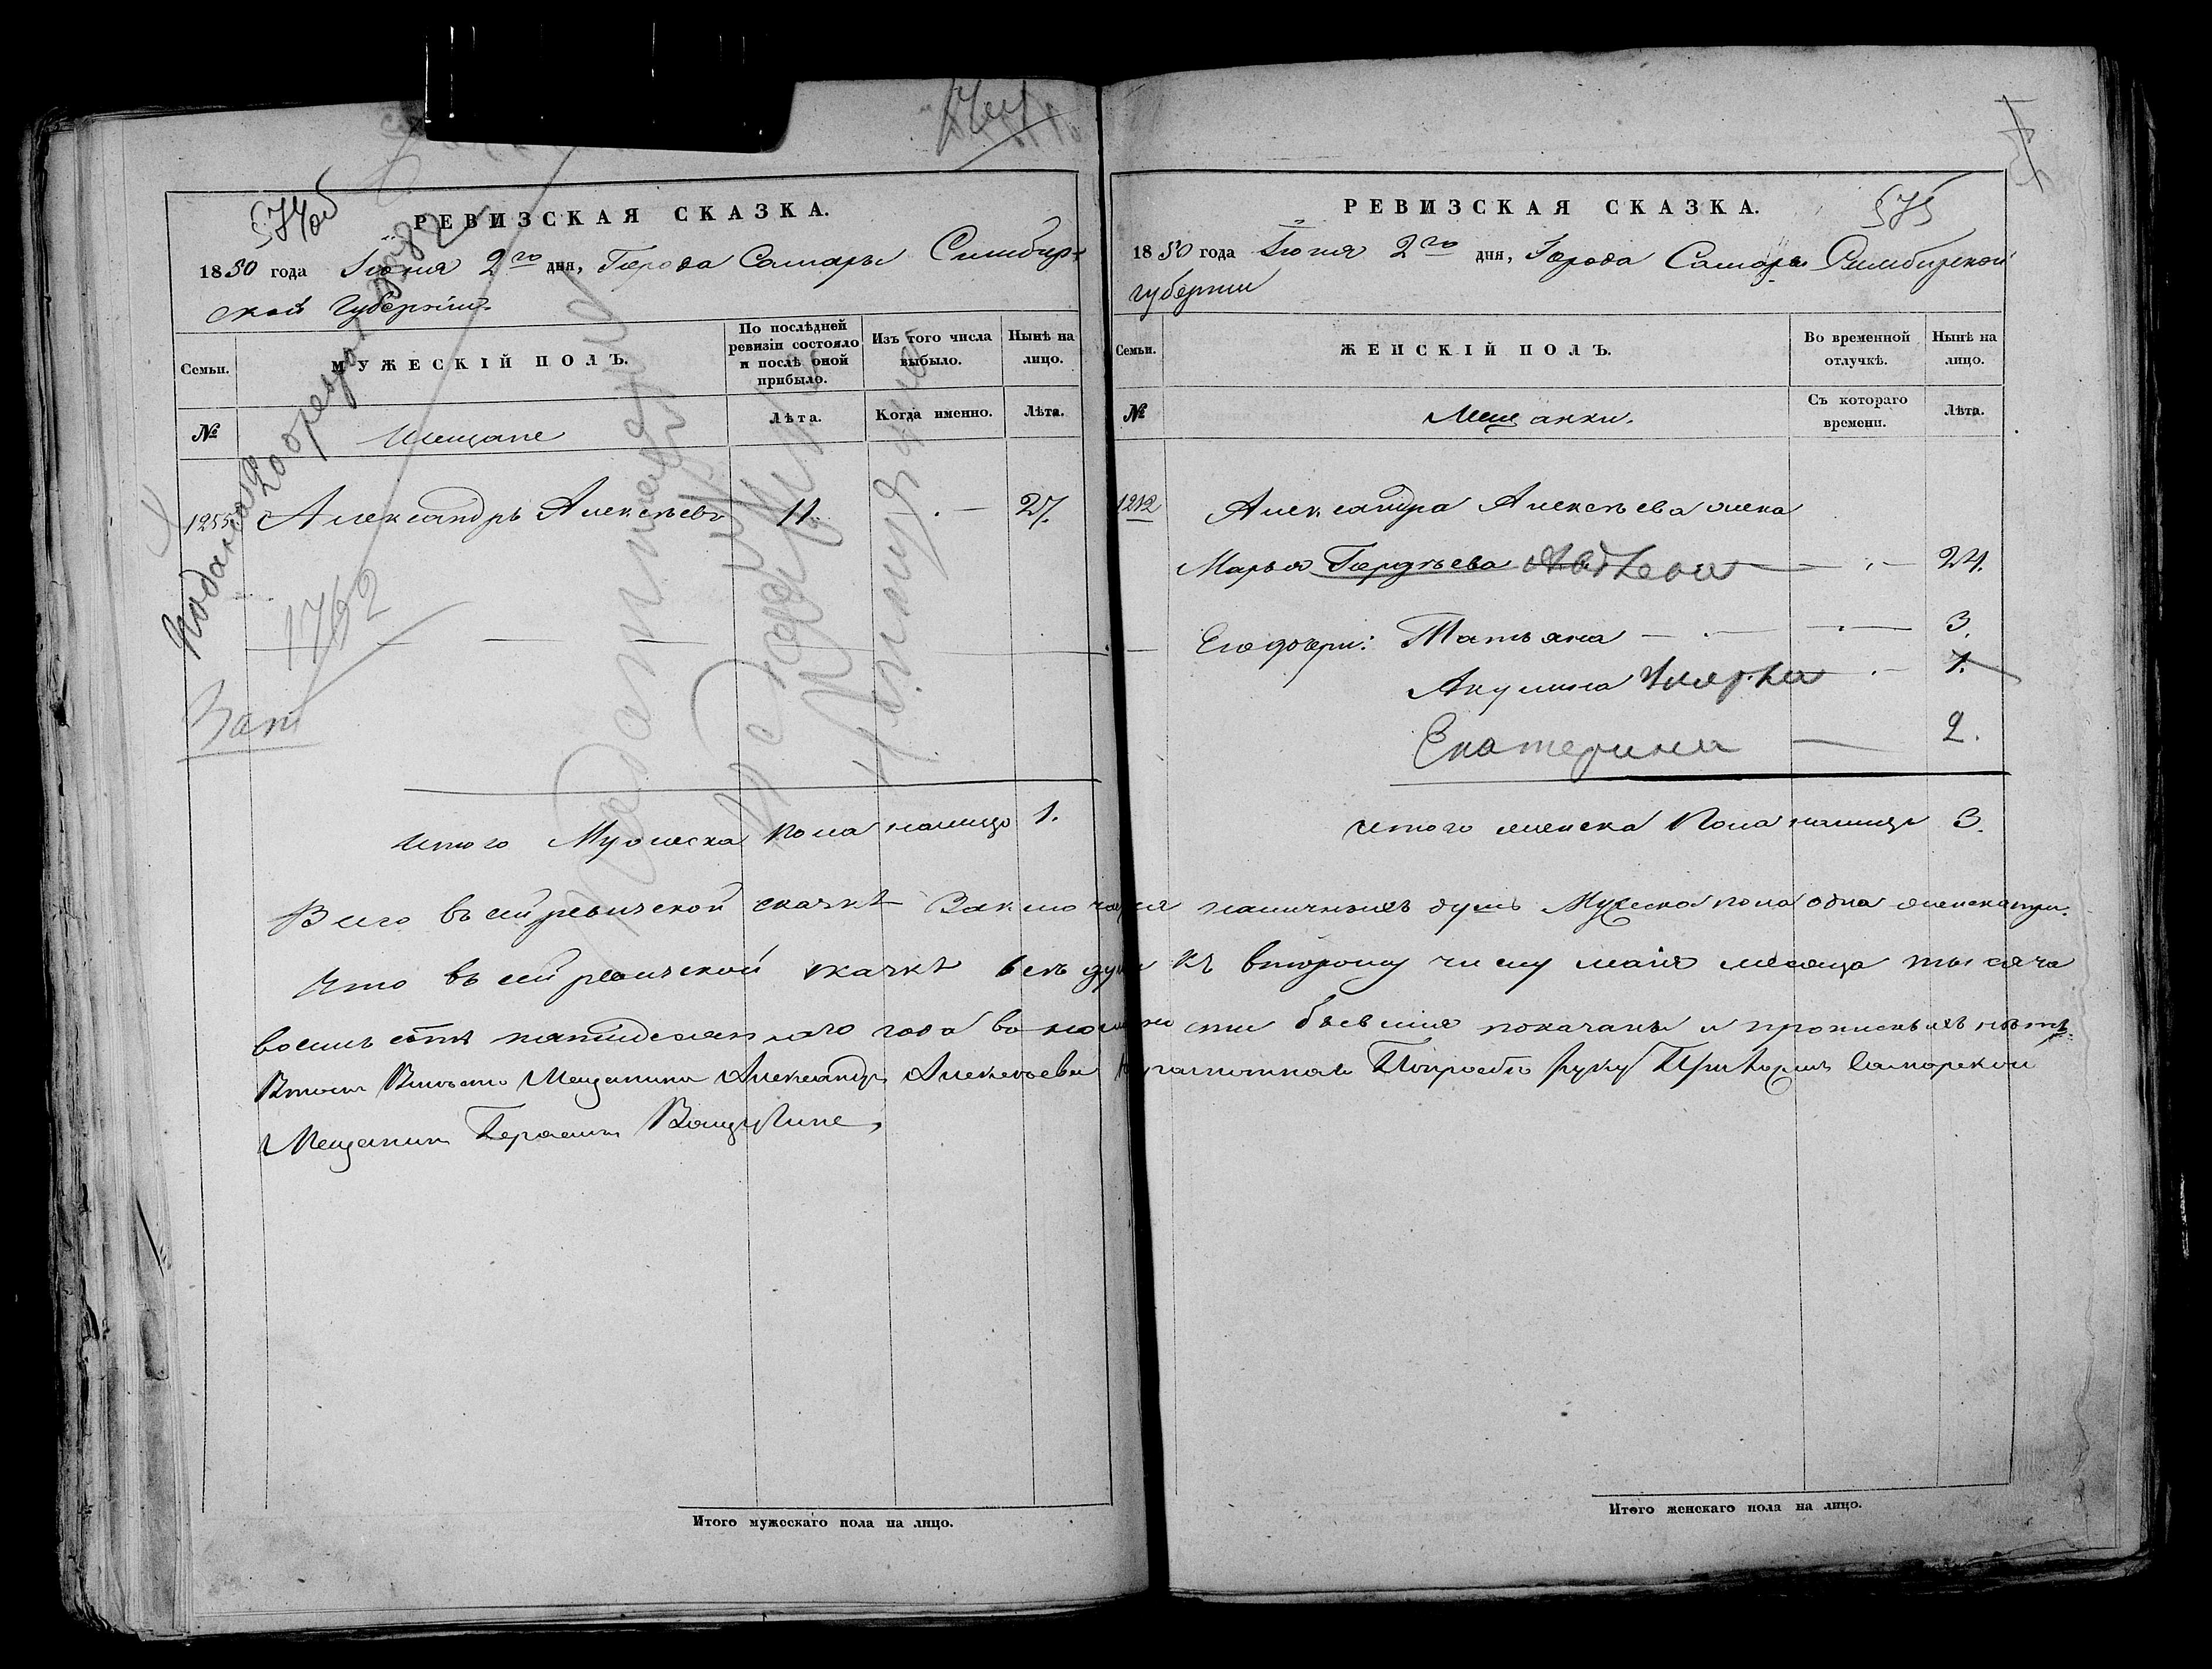 574об
РЕВИЗСКАЯ СКАЗКА.
1850 года Іюня 2го дня, Города Самары Симбир-
ской Губерніи.
Семьи.
МУЖЕСКІЙ ПОЛЪ.
По послѣдней ревизіи состояло и послѣ оной прибыло.
Изъ того числа выбыло.
Нынѣ на лицо.
№
Мещане
Лѣта.
Когда именно.
Лѣта.
1255 Александръ Алексѣевъ 11. 27.
Подана 20
1762
Итого Мужеска пола налицо 1.
575
РЕВИЗСКАЯ СКАЗКА.
1850 года Іюня 2го дня, Города Самары Симбирской
губерніи
Семьи.
ЖЕНСКІЙ ПОЛЪ.
Во временной отлучкѣ.
Нынѣ на лицо.
№
Мещанки.
Съ котораго времени.
Лѣта.
1212 Александра Алексѣева жена
Марья Гордѣева 24.
Его дочери: Татьяна 3.
Акулина умерла 1.
Екатерина 2.
итого женска Пола налицо 3.
Всего въ сей ревизской сказкѣ Заключается наличныхъ душъ Мужеска пола одна женска три.
Что въ сей ревизской сказкѣ всѣ души къ второму числу маія месяца тысяча
восемь сотъ пятидесятаго года въ наличности бывшія показаны и прописныхъ нѣтъ.
Вместо Мещанина Александра Алексеева Неграмотнаго Попрозбе руку Приложилъ Самарской
Мещанин Герасим
Итого мужескаго пола на лицо.
Итого женскаго пола на лицо.